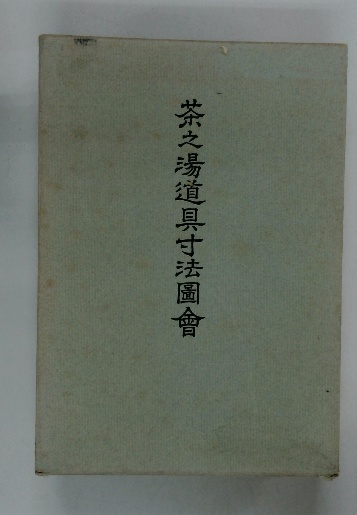 茶之湯道具寸法圖會